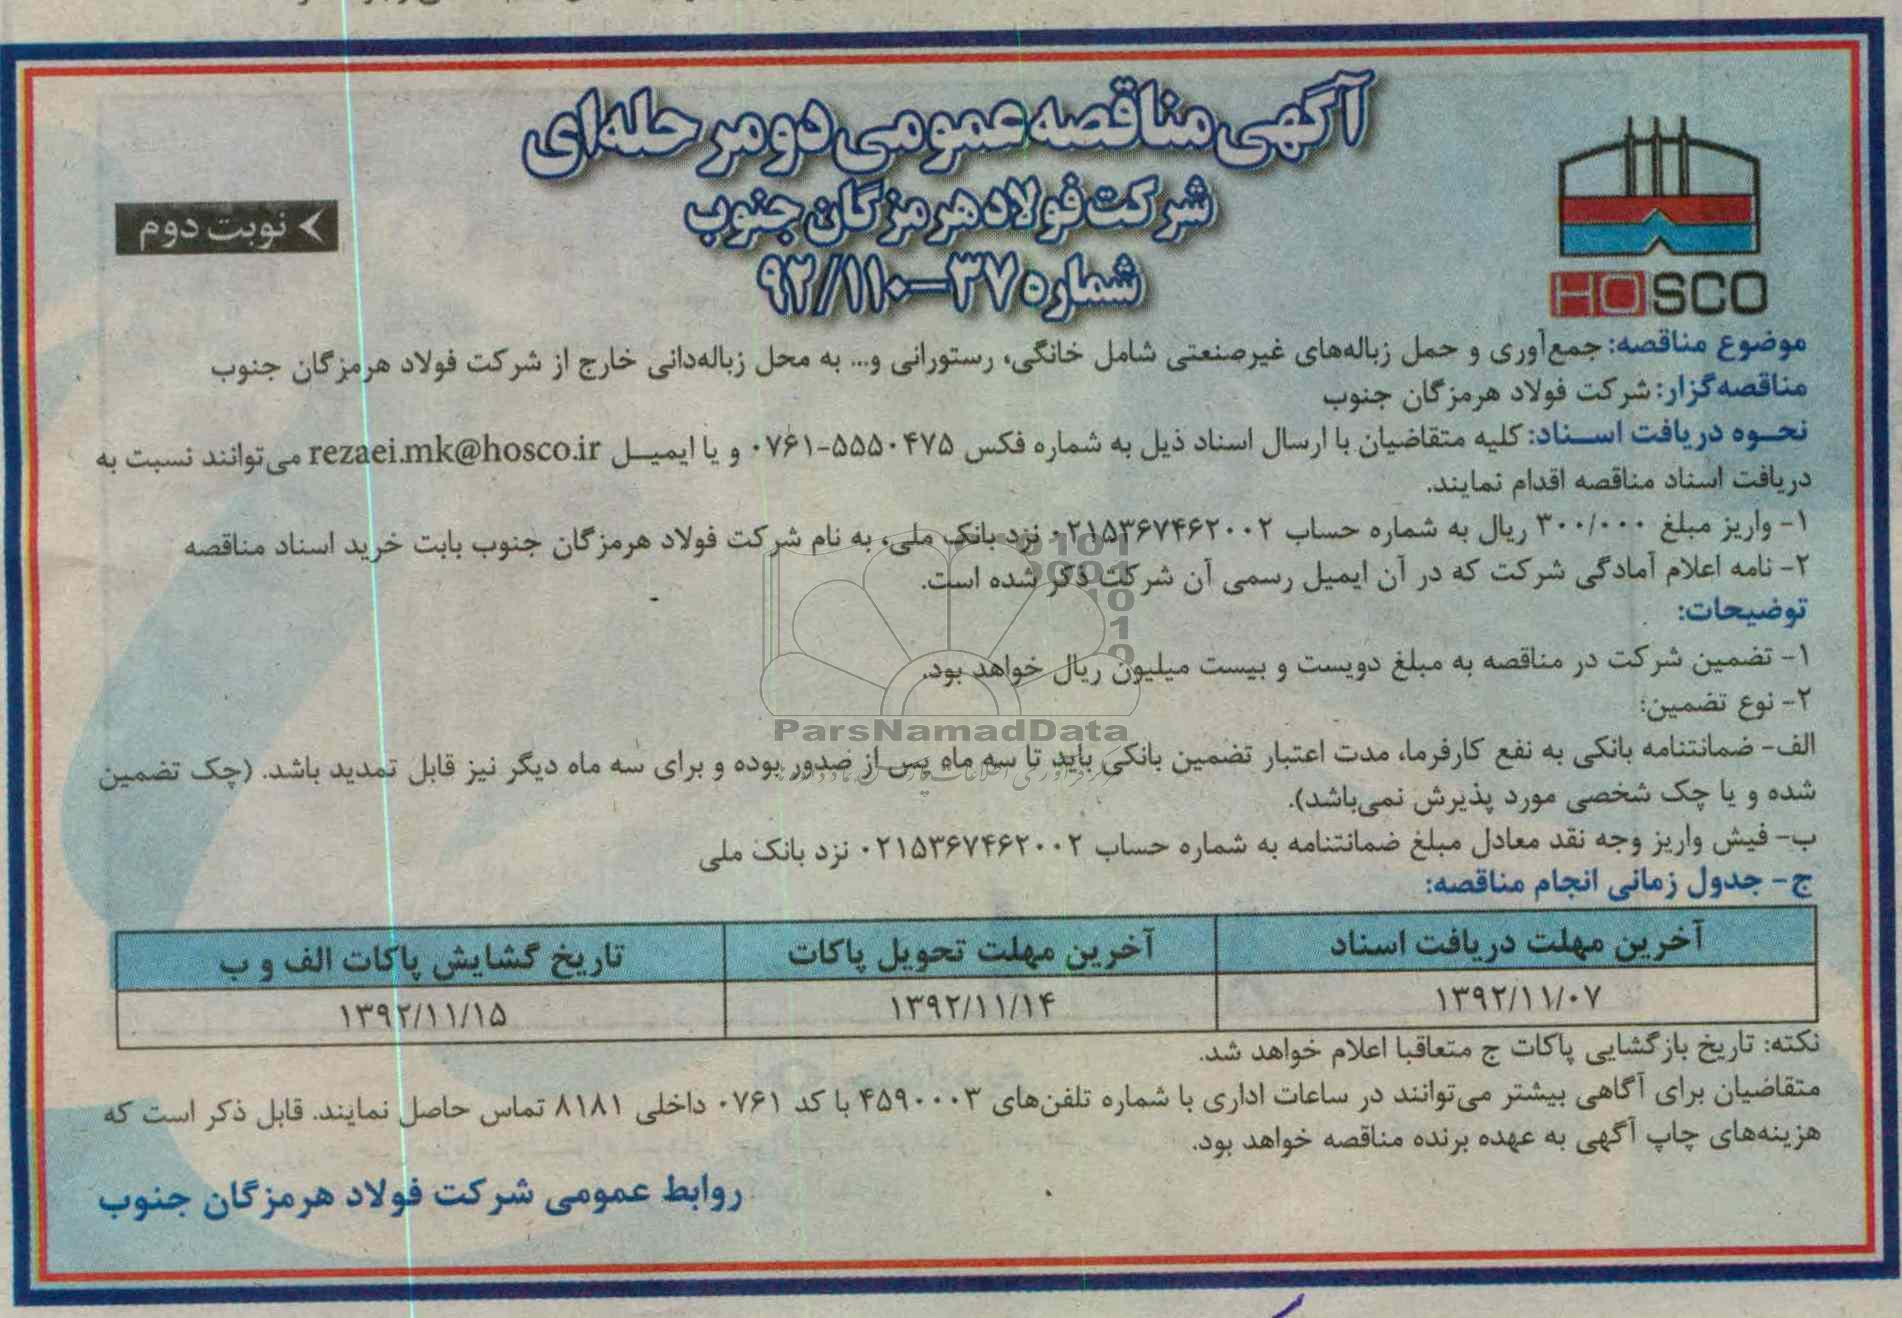 آگهی مناقصه عمومی دو مرحله‌ای
شرکت فولاد هرمزگان جنوب
شماره ۳۷-۹۲/۱۱۰
نوبت دوم
HOSCO
موضوع مناقصه: جمع‌آوری و حمل زباله‌های غیرصنعتی شامل خانگی، رستورانی و... به محل زباله‌دانی خارج از شرکت فولاد هرمزگان جنوب
مناقصه‌گزار: شرکت فولاد هرمزگان جنوب
نحوه دریافت اسناد: کلیه متقاضیان با ارسال اسناد ذیل به شماره فکس ۵۵۵۰۴۷۵-۰۷۶۱ و یا ایمیل rezaei.mk@hosco.ir می‌توانند نسبت به
دریافت اسناد مناقصه اقدام نمایند.
۱- واریز مبلغ ۳۰۰/۰۰۰ ریال به شماره حساب ۰۲۱۵۳۶۷۴۶۲۰۰۲ نزد بانک ملی، به نام شرکت فولاد هرمزگان جنوب بابت خرید اسناد مناقصه
۲- نامه اعلام آمادگی شرکت که در آن ایمیل رسمی آن شرکت ذکر شده است.
توضیحات:
۱- تضمین شرکت در مناقصه به مبلغ دویست و بیست میلیون ریال خواهد بود.
۲- نوع تضمین:
ParsNamadData
الف- ضمانتنامه بانکی به نفع کارفرما، مدت اعتبار تضمین بانکی باید تا سه ماه پس از صدور بوده و برای سه ماه دیگر نیز قابل تمدید باشد. (چک تضمین
شده و یا چک شخصی مورد پذیرش نمی‌باشد).
ب- فیش واریز وجه نقد معادل مبلغ ضمانتنامه به شماره حساب ۰۲۱۵۳۶۷۴۶۲۰۰۲ نزد بانک ملی
ج- جدول زمانی انجام مناقصه:
آخرین مهلت دریافت اسناد آخرین مهلت تحویل پاکات تاریخ گشایش پاکات الف و ب
۱۳۹۲/۱۱/۰۷ ۱۳۹۲/۱۱/۱۴ ۱۳۹۲/۱۱/۱۵
نکته: تاریخ بازگشایی پاکات ج متعاقبا اعلام خواهد شد.
متقاضیان برای آگاهی بیشتر می‌توانند در ساعات اداری با شماره تلفن‌های ۴۵۹۰۰۰۳ با کد ۰۷۶۱ داخلی ۸۱۸۱ تماس حاصل نمایند. قابل ذکر است که
هزینه‌های چاپ آگهی به عهده برنده مناقصه خواهد بود.
روابط عمومی شرکت فولاد هرمزگان جنوب